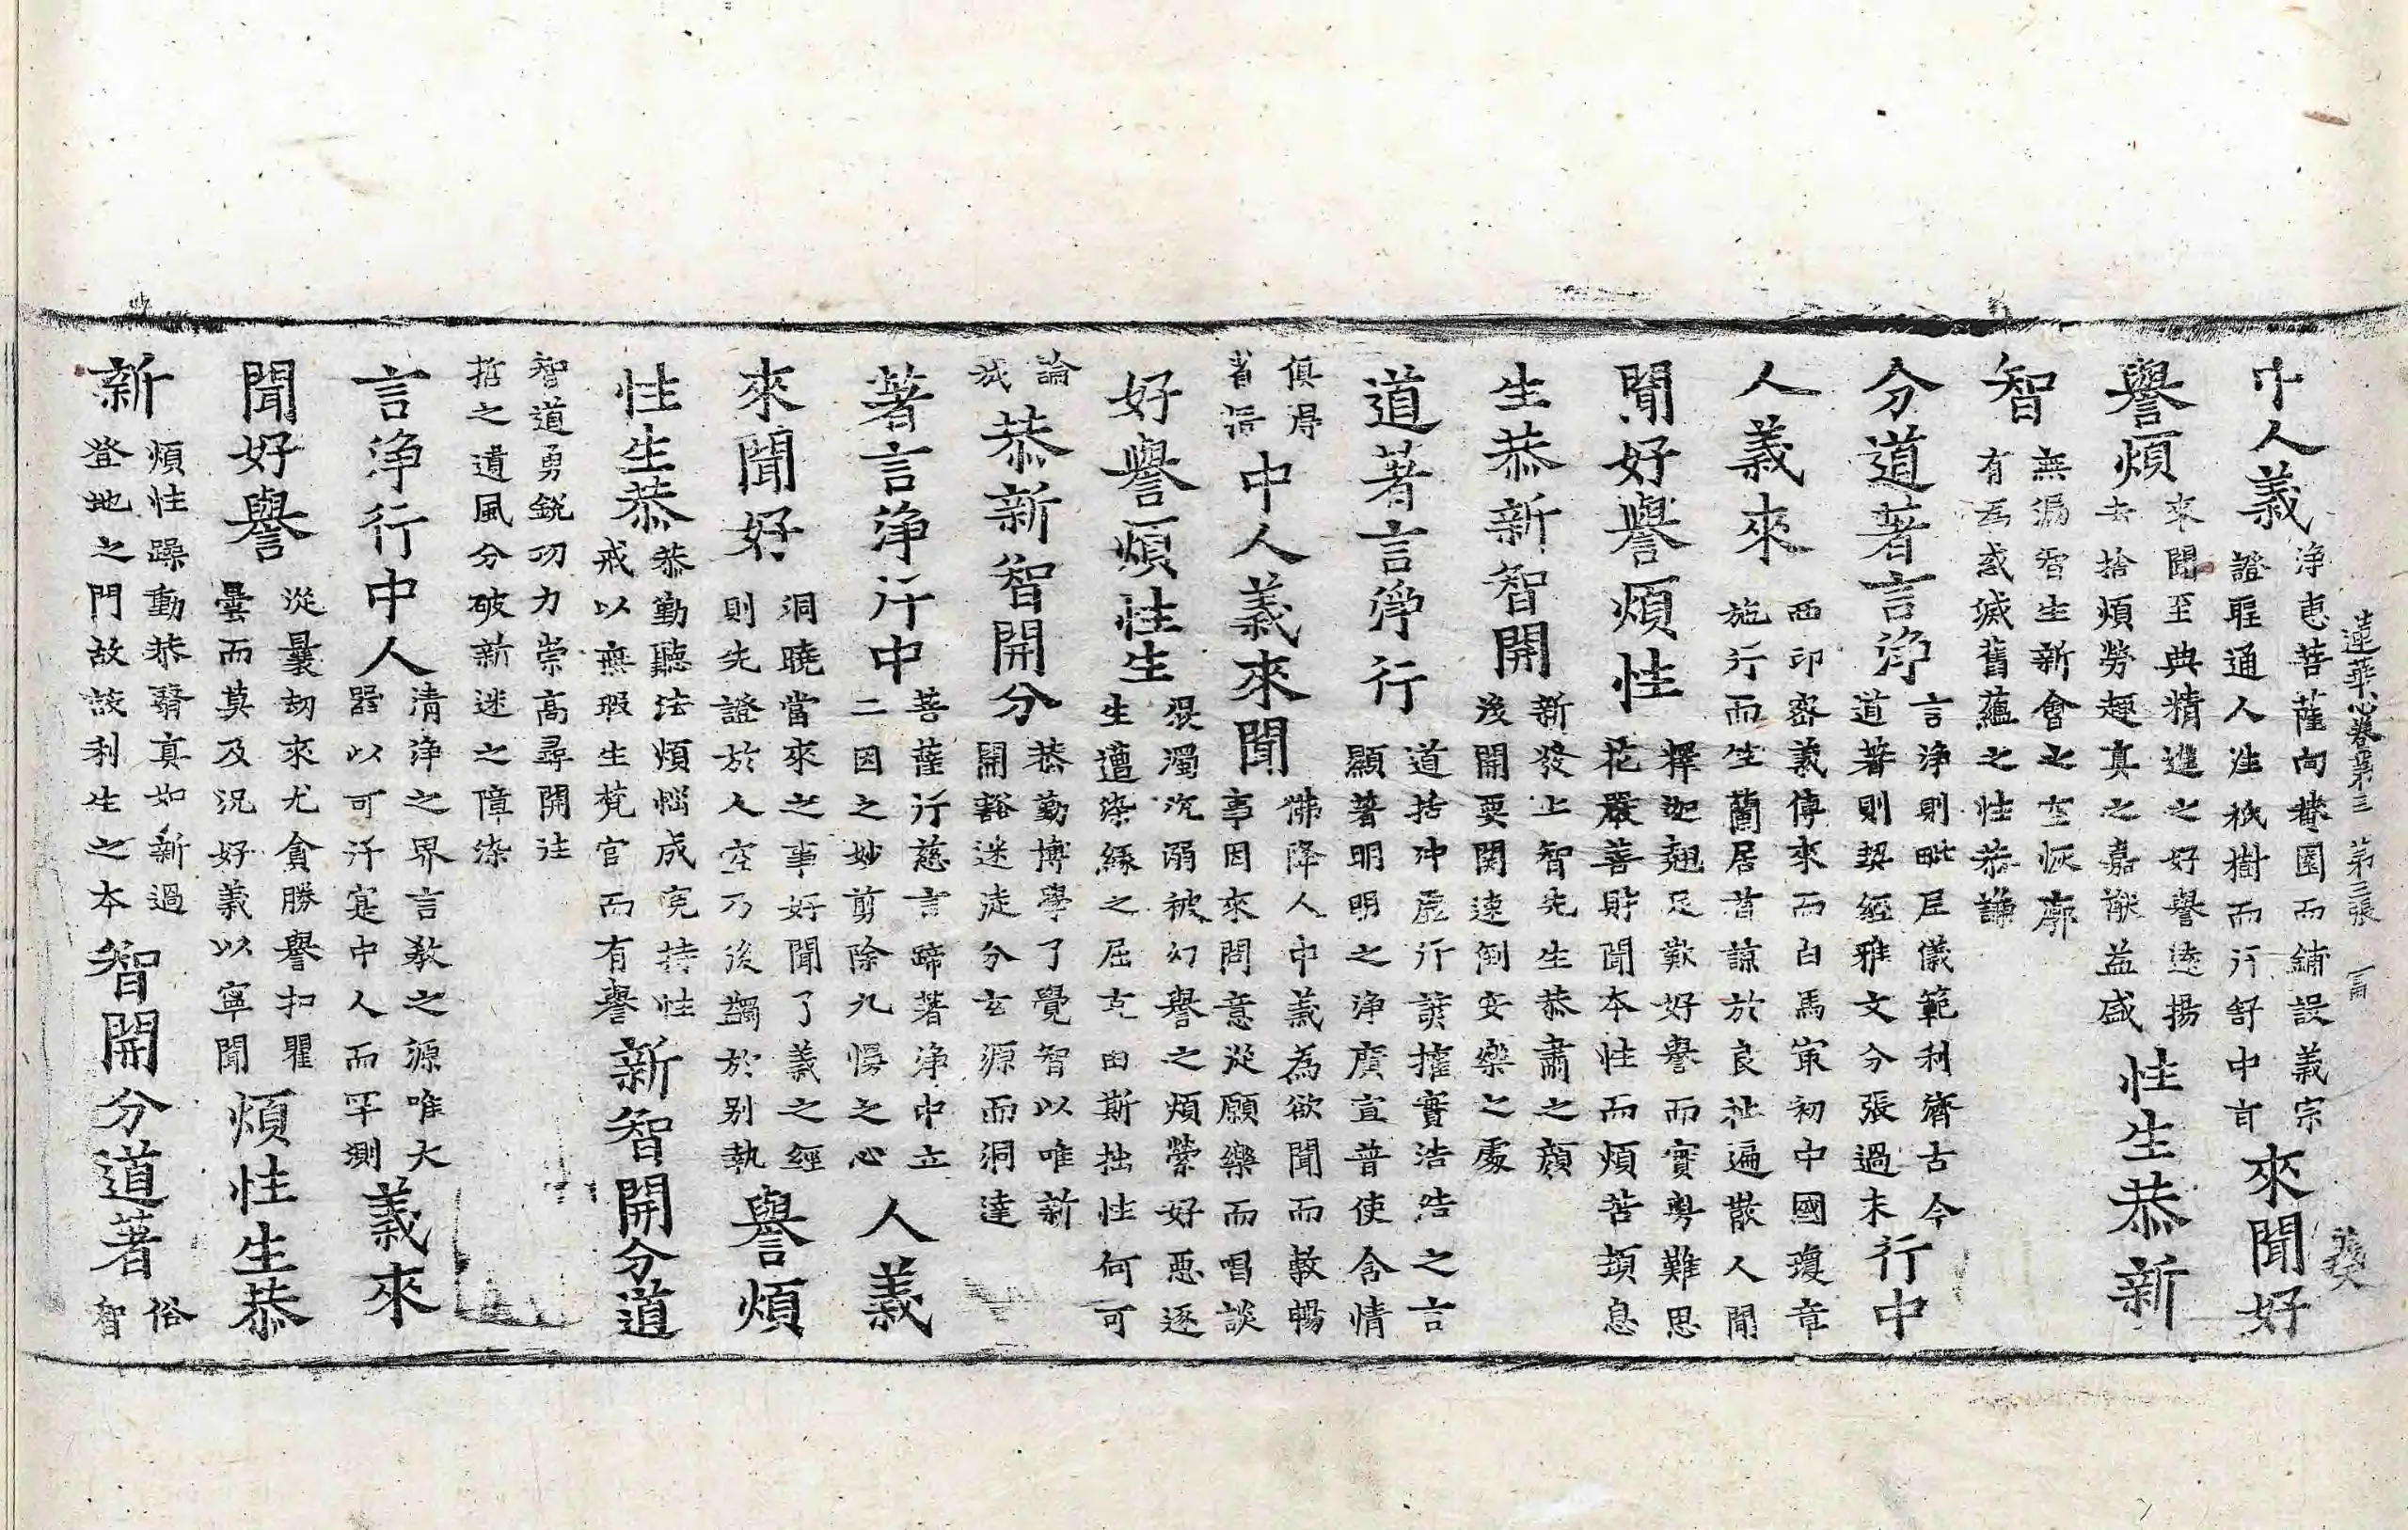 蓮華心卷第三 第三張
中人義 淨惠菩薩向㮈園而鋪設義宗
證聖通人往秖樹而行舒中旨 來聞好
譽煩 來聞至典精進之好譽遠揚
去捨煩勞趣真之嘉猷益盛 性生恭新
智 無漏智生新會之玄恢廓
有為惑滅舊蘊之性恭謙
分道著言淨 言淨則毗尼儀範利濟古今
道著則契經雅文分張過末 行中
人義來 西印密義傳來而白馬寅初中國瓊章
施行而生蘭居昔諒於良祉遍散人聞
聞好譽煩性 釋迦翹足歎好譽而實粵難思
花嚴善財聞本性而煩苦頓息
生恭新智開 新發上智先生恭肅之顏
後開要関速倒安樂之處
道著言淨行 道括沖虛行讃攉實浩浩之言
顯著明明之淨廣宣普使含情
俱得
省悟 中人義來聞 佛降人中義為欲聞而敷暢
事因來問意從願樂而唱談
好譽煩性生 混濁沉溺被幻譽之煩縈好惡逐
生遭染緣之屈克由斯拙性何可
論
哉 恭新智開分 恭勤博學了覺智以唯新
開豁迷徒分玄源而洞達
著言淨行中 菩薩行慈言諦著淨中立
二因之妙剪除九慢之心 人義
來聞好 洞曉當來之事好聞了義之經
則先證於人空乃後蠲於別執 譽煩
性生恭 恭勤聽法煩惱成克持性
戒以無瑕生梵官而有譽 新智開分道
智道勇銳功力崇高尋開往
哲之遺風分破新迷之障染
言淨行中人 清淨之界言教之源唯大
器以可汗寔中人而罕測 義來
聞好譽 從曩劫來尤貪勝譽扣瞿
曇而莫及況好義以寧聞 煩性生恭
新 煩性躁動恭翳真如新過
登地之門故設利生之本 智開分道著 俗
智